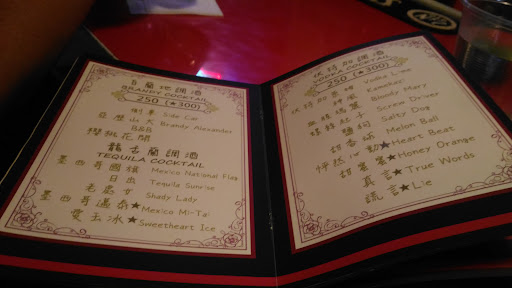 白蘭地調酒
BRANDY COCKTAIL
250 (★300)
側車 Side Car
亞歷山大 Brandy Alexander
B&B
龍舌蘭調酒
TEQUILA COCKTAIL
墨西哥國旗 Mexico National Flag
日出 Tequila Sunrise
Shady Lady
墨西哥邁泰★Mexico Mi-Tai
愛玉冰★Sweetheart Ice
伏特加調酒
VODKA COCKTAIL
250 (★300)
伏特加萊姆 Vodka Lime
神風 Kamekaz
血腥瑪麗 Bloody Mary
螺絲起子 Screw Driver
鹽狗 Salty Dog
甜香瓜 Melon Ball
怦然心動★Heart Beat
甜蜜蜜★Honey Orange
真言★True Words
謊言★Lie